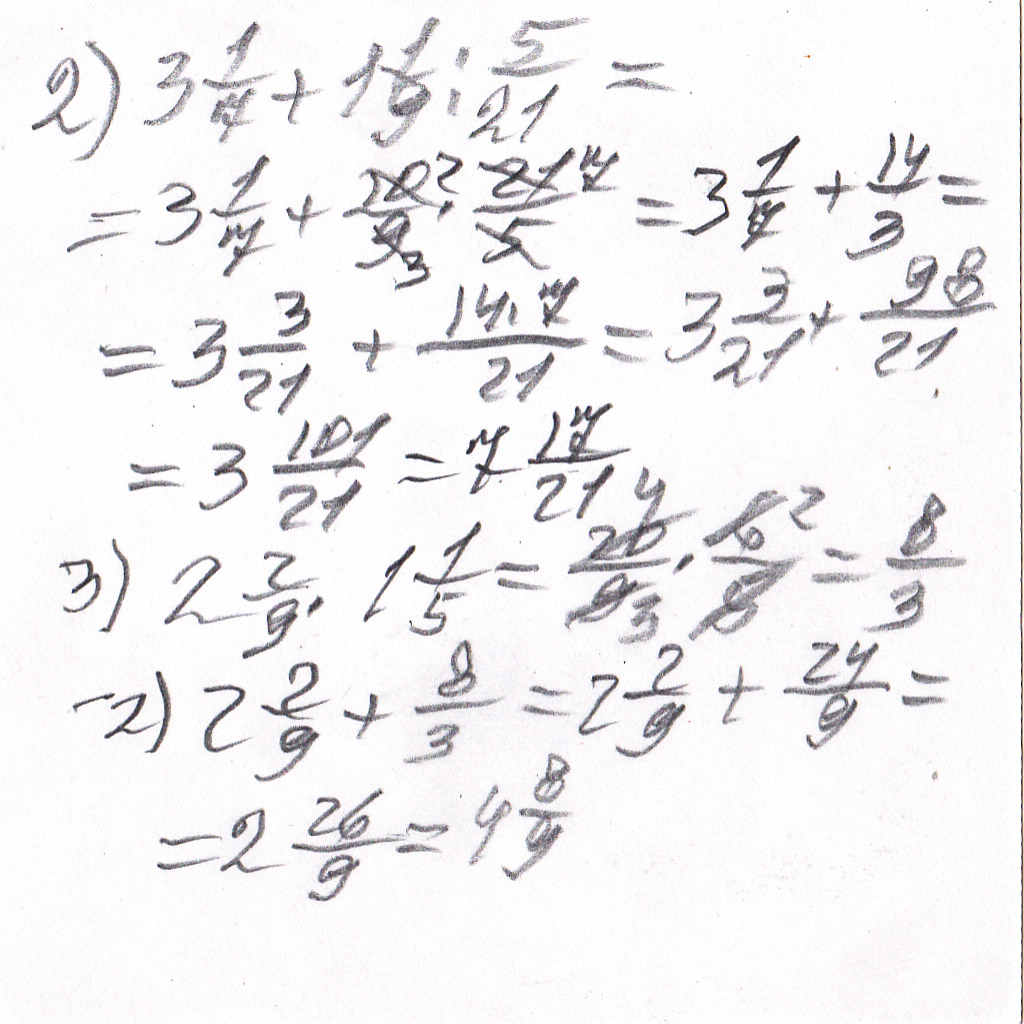 2) 3 1/7 + 1 1/9 : 5/21 =
= 3 1/7 + 10/9 · 21/5 = 3 1/7 + 14/3 =
= 3 3/21 + 14·7/21 = 3 3/21 + 98/21
= 3 101/21 = 7 17/21
3) 2 2/9 · 1 1/5 = 20/9 · 6/5 = 8/3
2) 2 2/9 + 8/3 = 2 2/9 + 24/9 =
= 2 26/9 = 4 8/9